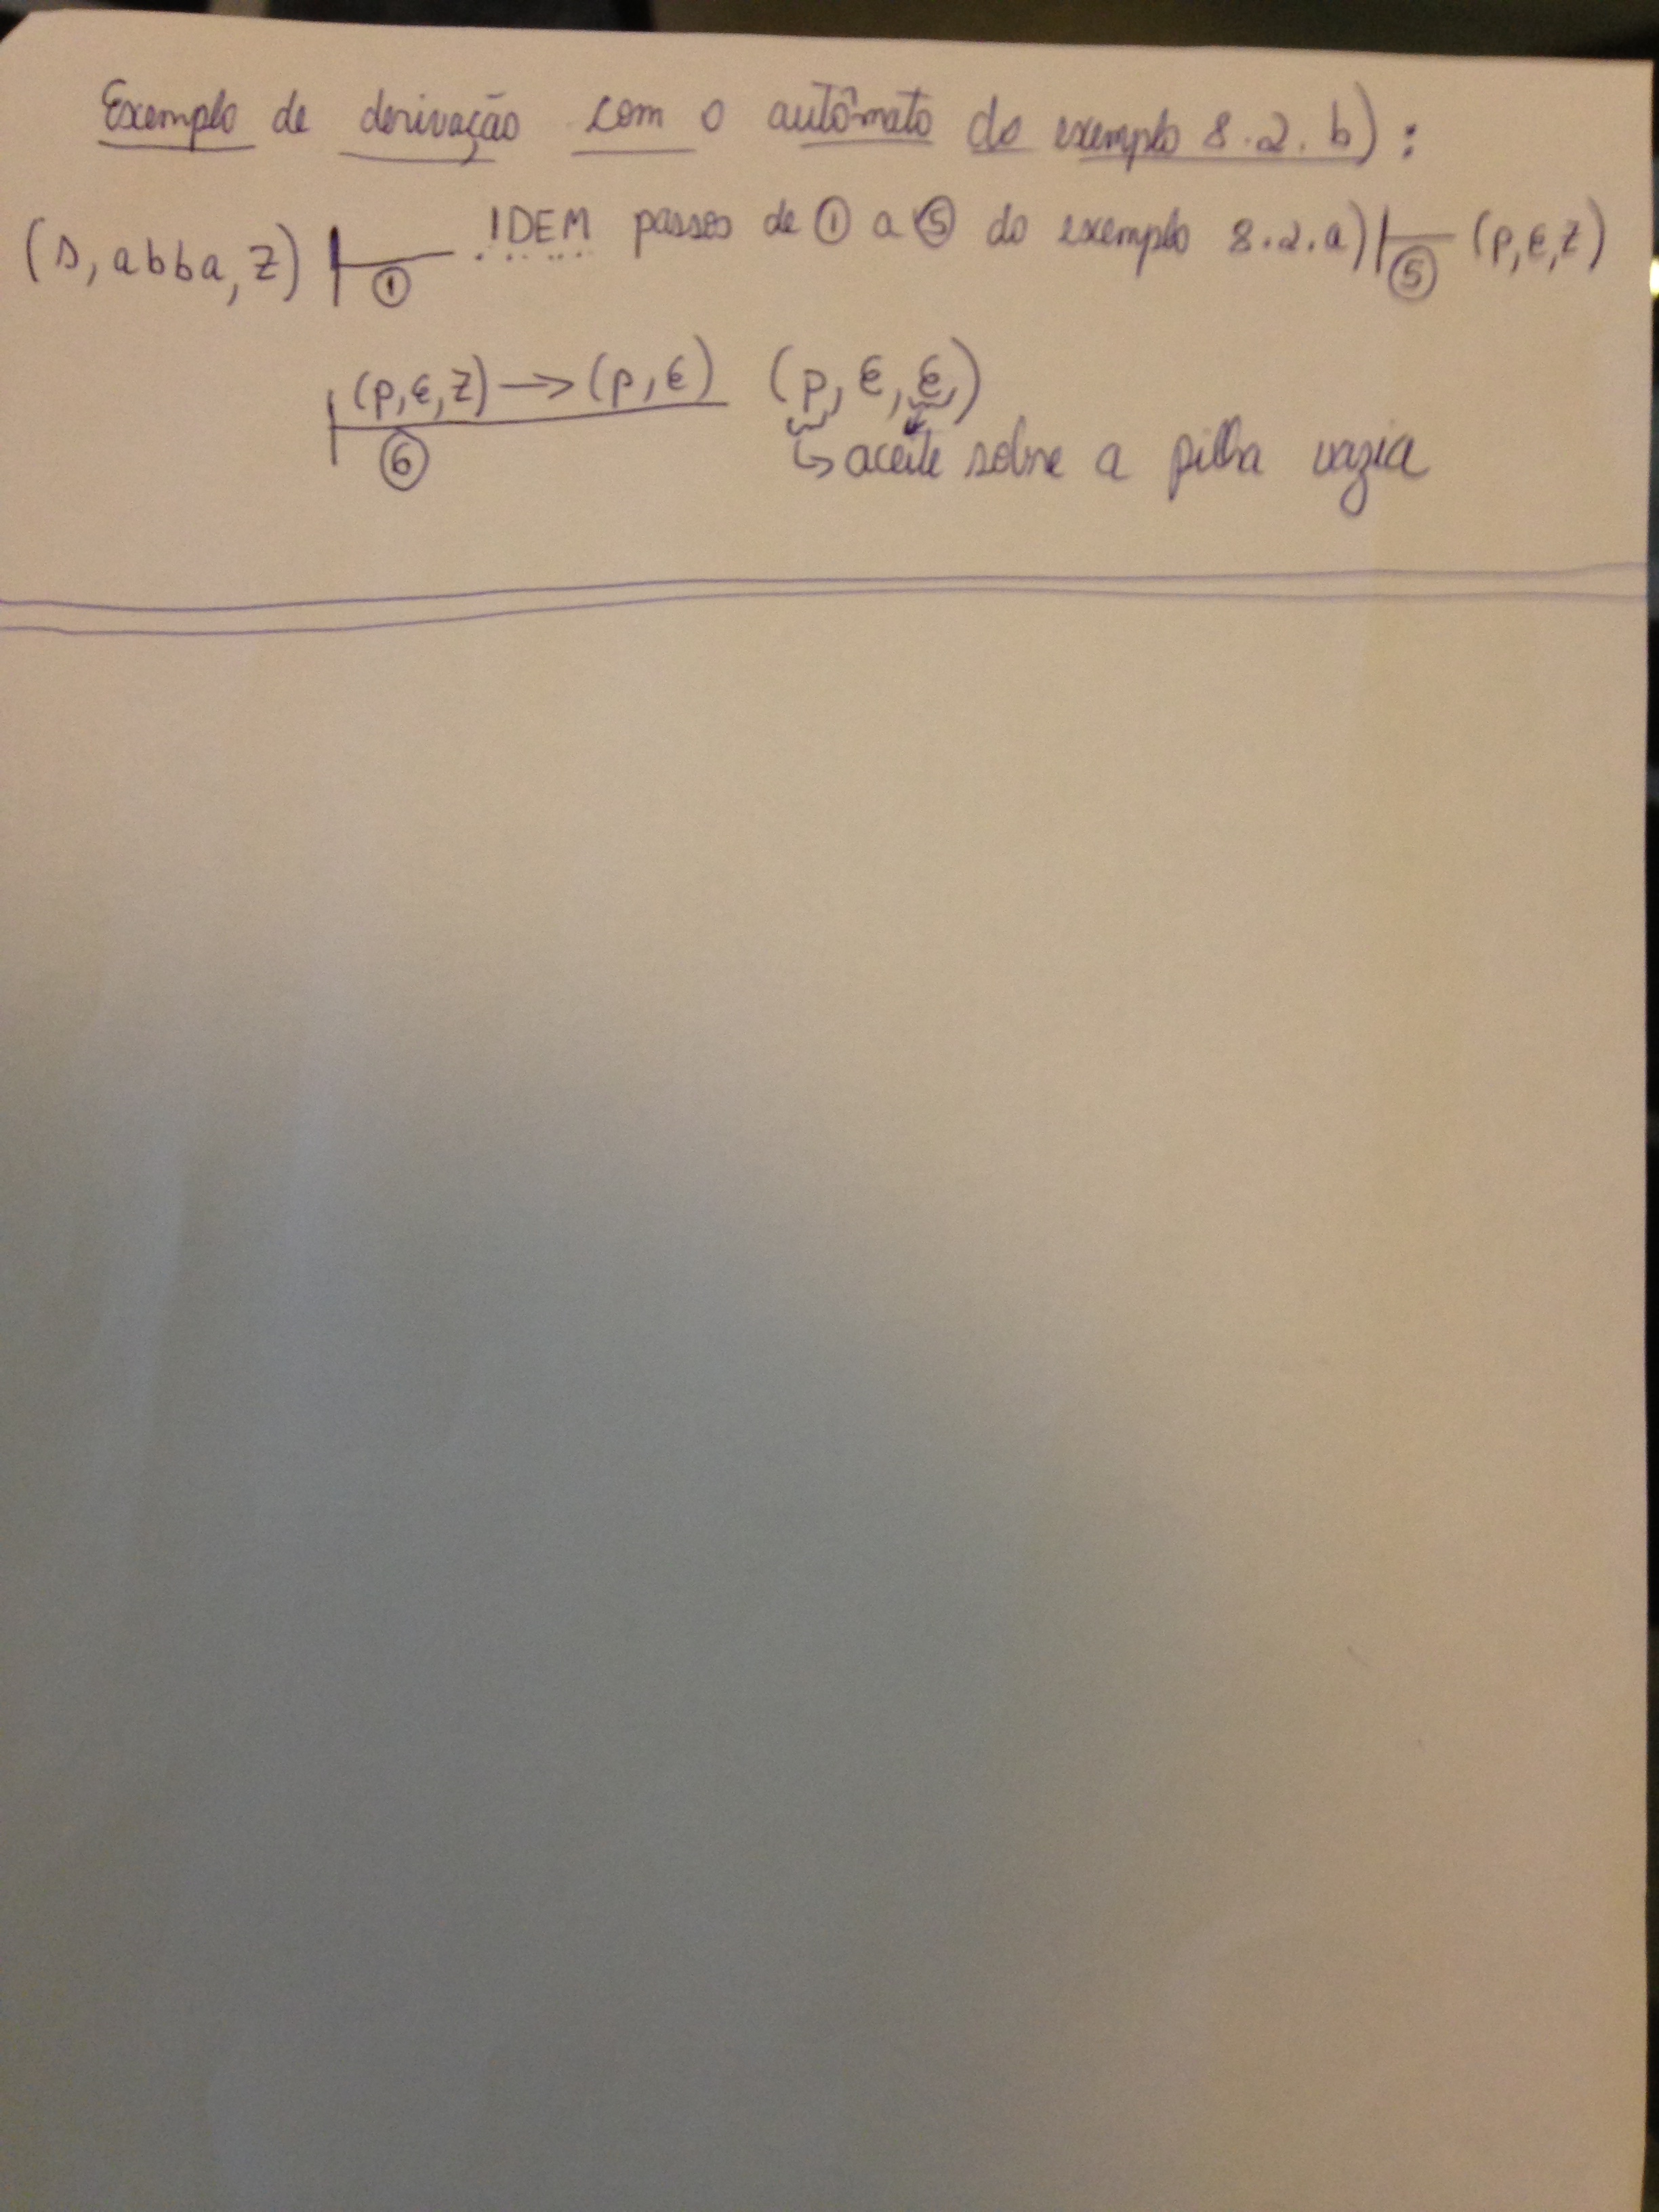 Exemplo de derivação com o autômato do exemplo 8.2.b):
(s, abba, Z) |— ① IDEM passos de ① a ⑤ do exemplo 8.2.a) |— ⑤ (p, ε, Z)
|— (p, ε, Z) → (p, ε) ⑥ (p, ε, ε)
↳ aceite sobre a pilha vazia